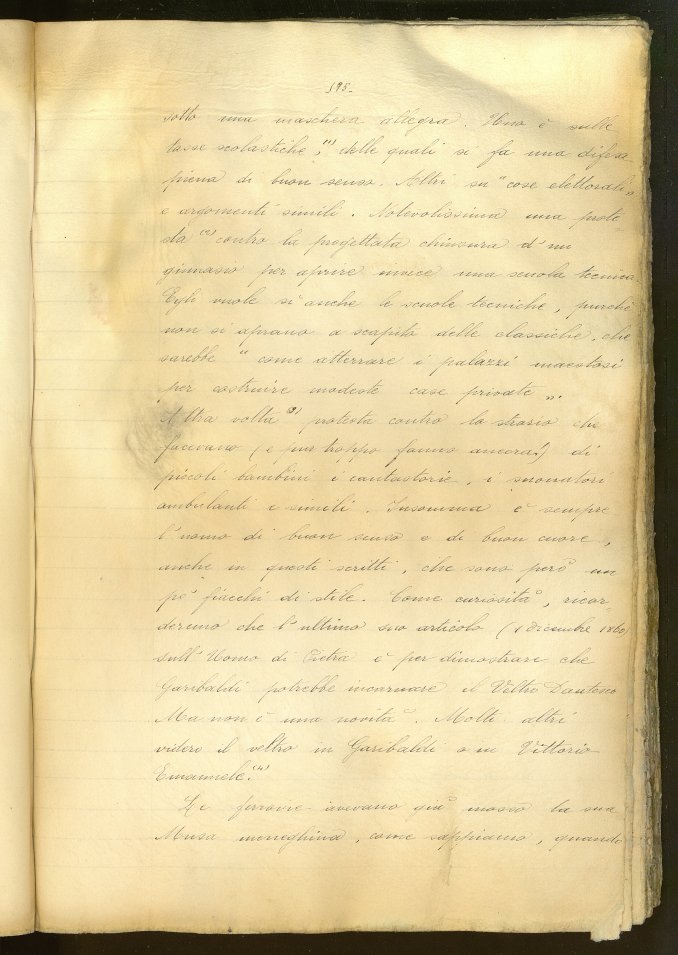 -195-
sotto una maschera allegra. Uno è sulle
tasse scolastiche,(1) delle quali si fa una difesa
piena di buon senso. Altri su "cose elettorali"
e argomenti simili. Notevolissima una prote-
sta (2) contro la progettata chiusura d'un
ginnasio per aprire invece una scuola tecnica.
Egli vuole sì anche le scuole tecniche, purchè
non si aprano a scapito delle classiche, che
sarebbe "come atterrare i palazzi maestosi
"per costruire modeste case private".
Altra volta (3) protesta contro lo strazio che
facevano (e pur troppo fanno ancora!) di
piccoli bambini i cantastorie, i suonatori
ambulanti e simili. Insomma è sempre
l'uomo di buon senso e di buon cuore,
anche in questi scritti, che sono però un
po' fiacchi di stile. Come curiosità, ricor-
deremo che l'ultimo suo articolo (1 Dicembre 1860)
sull'Uomo di Pietra è per dimostrare che
Garibaldi potrebbe incarnare il Veltro Dantesco
Ma non è una novità. Molti altri
videro il veltro in Garibaldi o in Vittorio
Emanuele.(4)
Le ferrovie avevano già mosso la sua
Musa meneghina, come sappiamo, quando